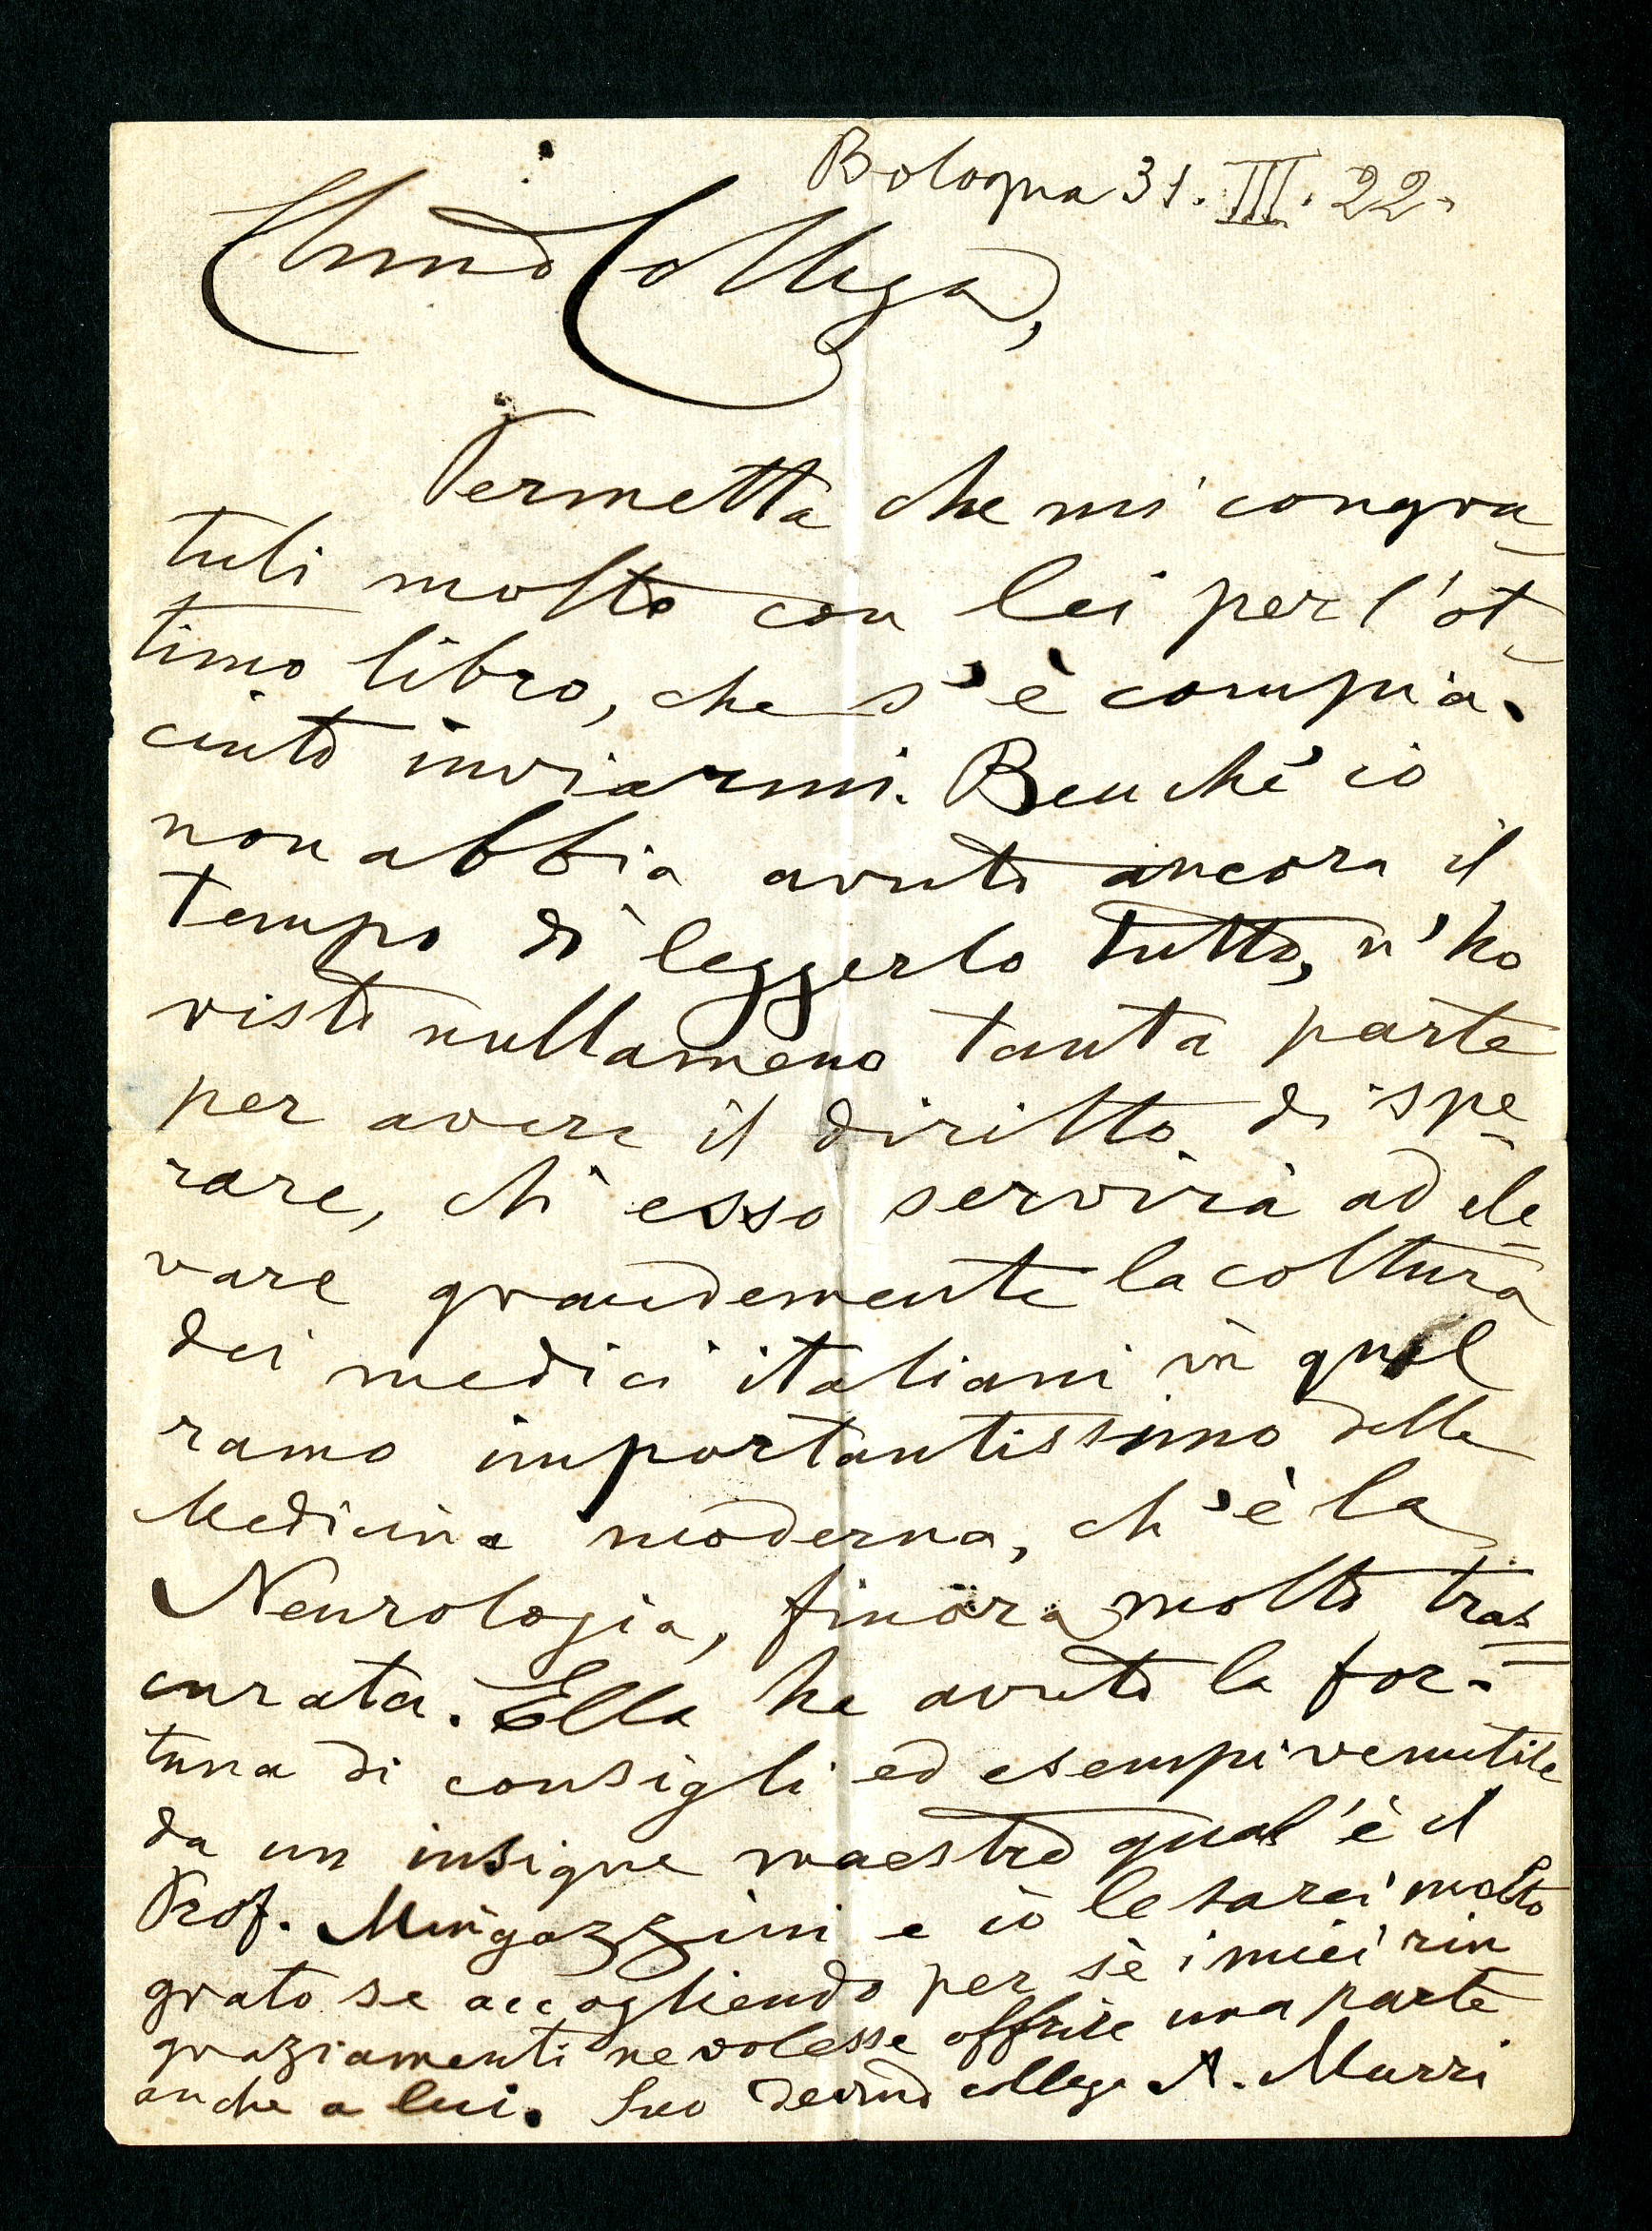 Bologna 31. III. 22.
Chmo Collega,
Permetta che mi congra-
tuli molto con lei per l'ot-
timo libro, che s'è compia-
ciuto inviarmi. Benchè io
non abbia avuto ancora il
tempo di leggerlo tutto, n'ho
visto nullameno tanta parte
per avere il diritto di spe-
rare, ch'esso servirà ad ele-
vare grandemente la coltura
dei medici italiani in quel
ramo importantissimo della
Medicina moderna, ch'è la
Neurologia, finora molto tras-
curata. Ella ha avuto la for-
tuna di consigli ed esempi venutile
da un insigne maestro qual'è il
Prof. Mingazzini e io le sarei molto
grato se accogliendo per sè i miei rin
graziamenti ne volesse offrire una parte
anche a lui. Suo devmo collega A. Murri